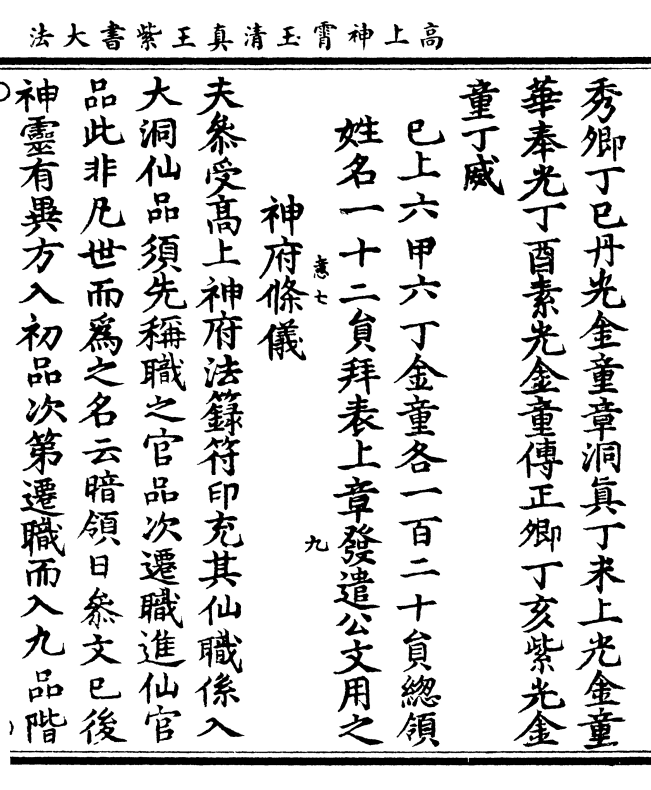 高上神霄玉清真王紫書大法
秀卿丁巳丹光金童章洞眞丁未上光金童
華奉光丁酉素光金童傳正卿丁亥紫光金
童丁威
巳上六甲六丁金童各一百二十員緫領
姓名一十二員拜表上章發遣公文用之
意七
九
神府條儀
夫叅受高上神府法籙符印充其仙職係入
大洞仙品須先稱職之官品次遷職進仙官
品此非凡世而爲之名云暗領日叅文巳後
神靈有異方入初品次第遷職而入九品階